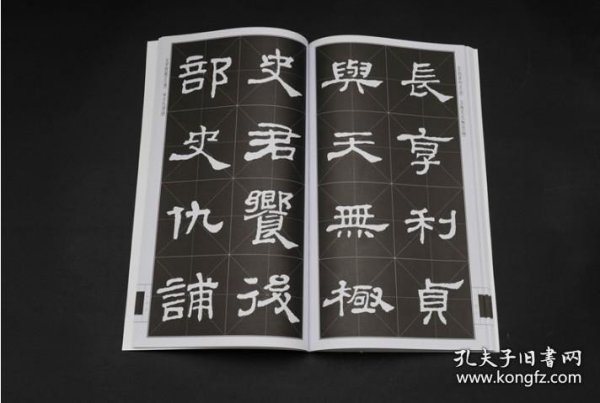 長享利貞
與天無極
史君饗後
部史仇誧
孔夫子旧書网
www.kongfz.com